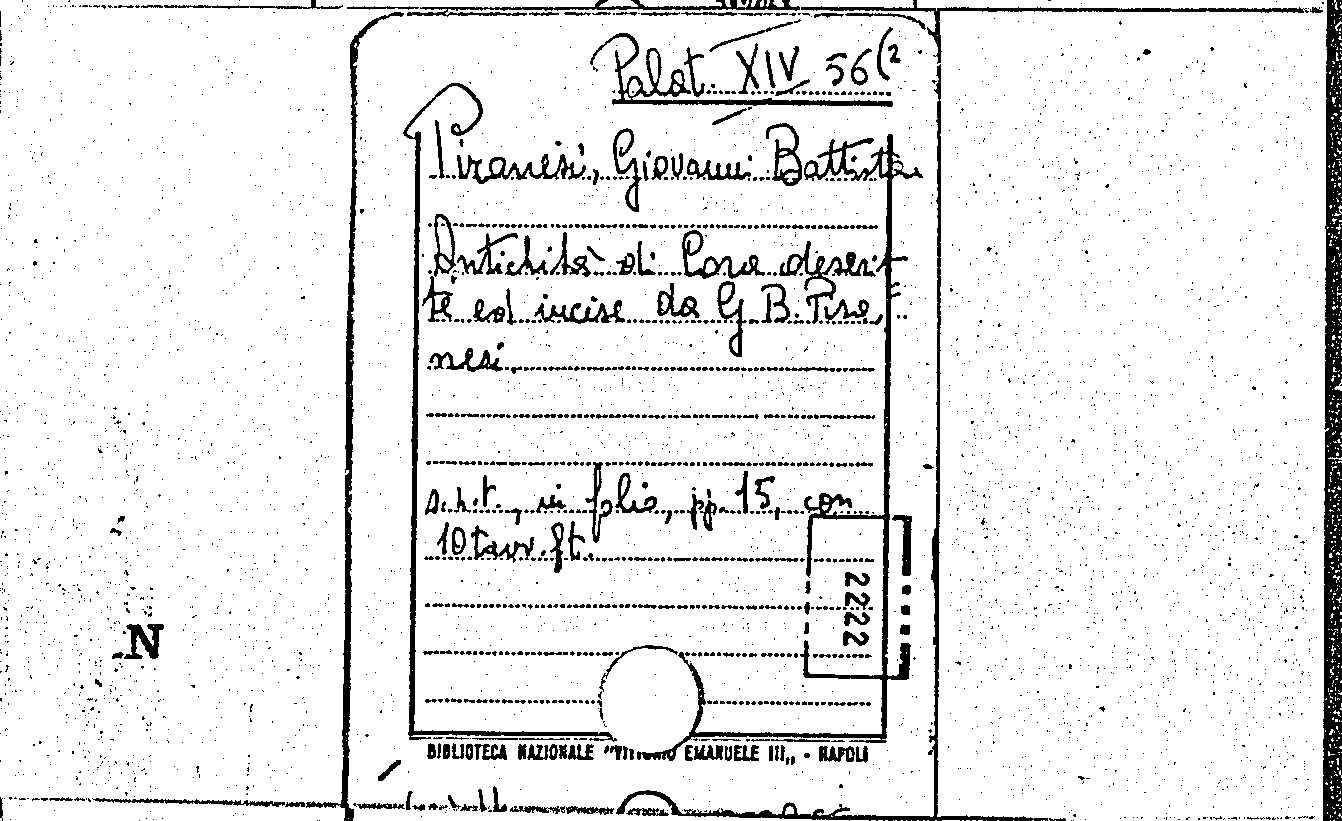 Palat. XIV 56(2
Piranesi, Giovanni Battista
Antichità di Cora descrit=
te ed incise da G. B. Pira=
nesi.
s.n.t., in folio, pp. 15, con
10 tavv. f.t.
2222
N
BIBLIOTECA NAZIONALE "VITTORIO EMANUELE III„ - NAPOLI